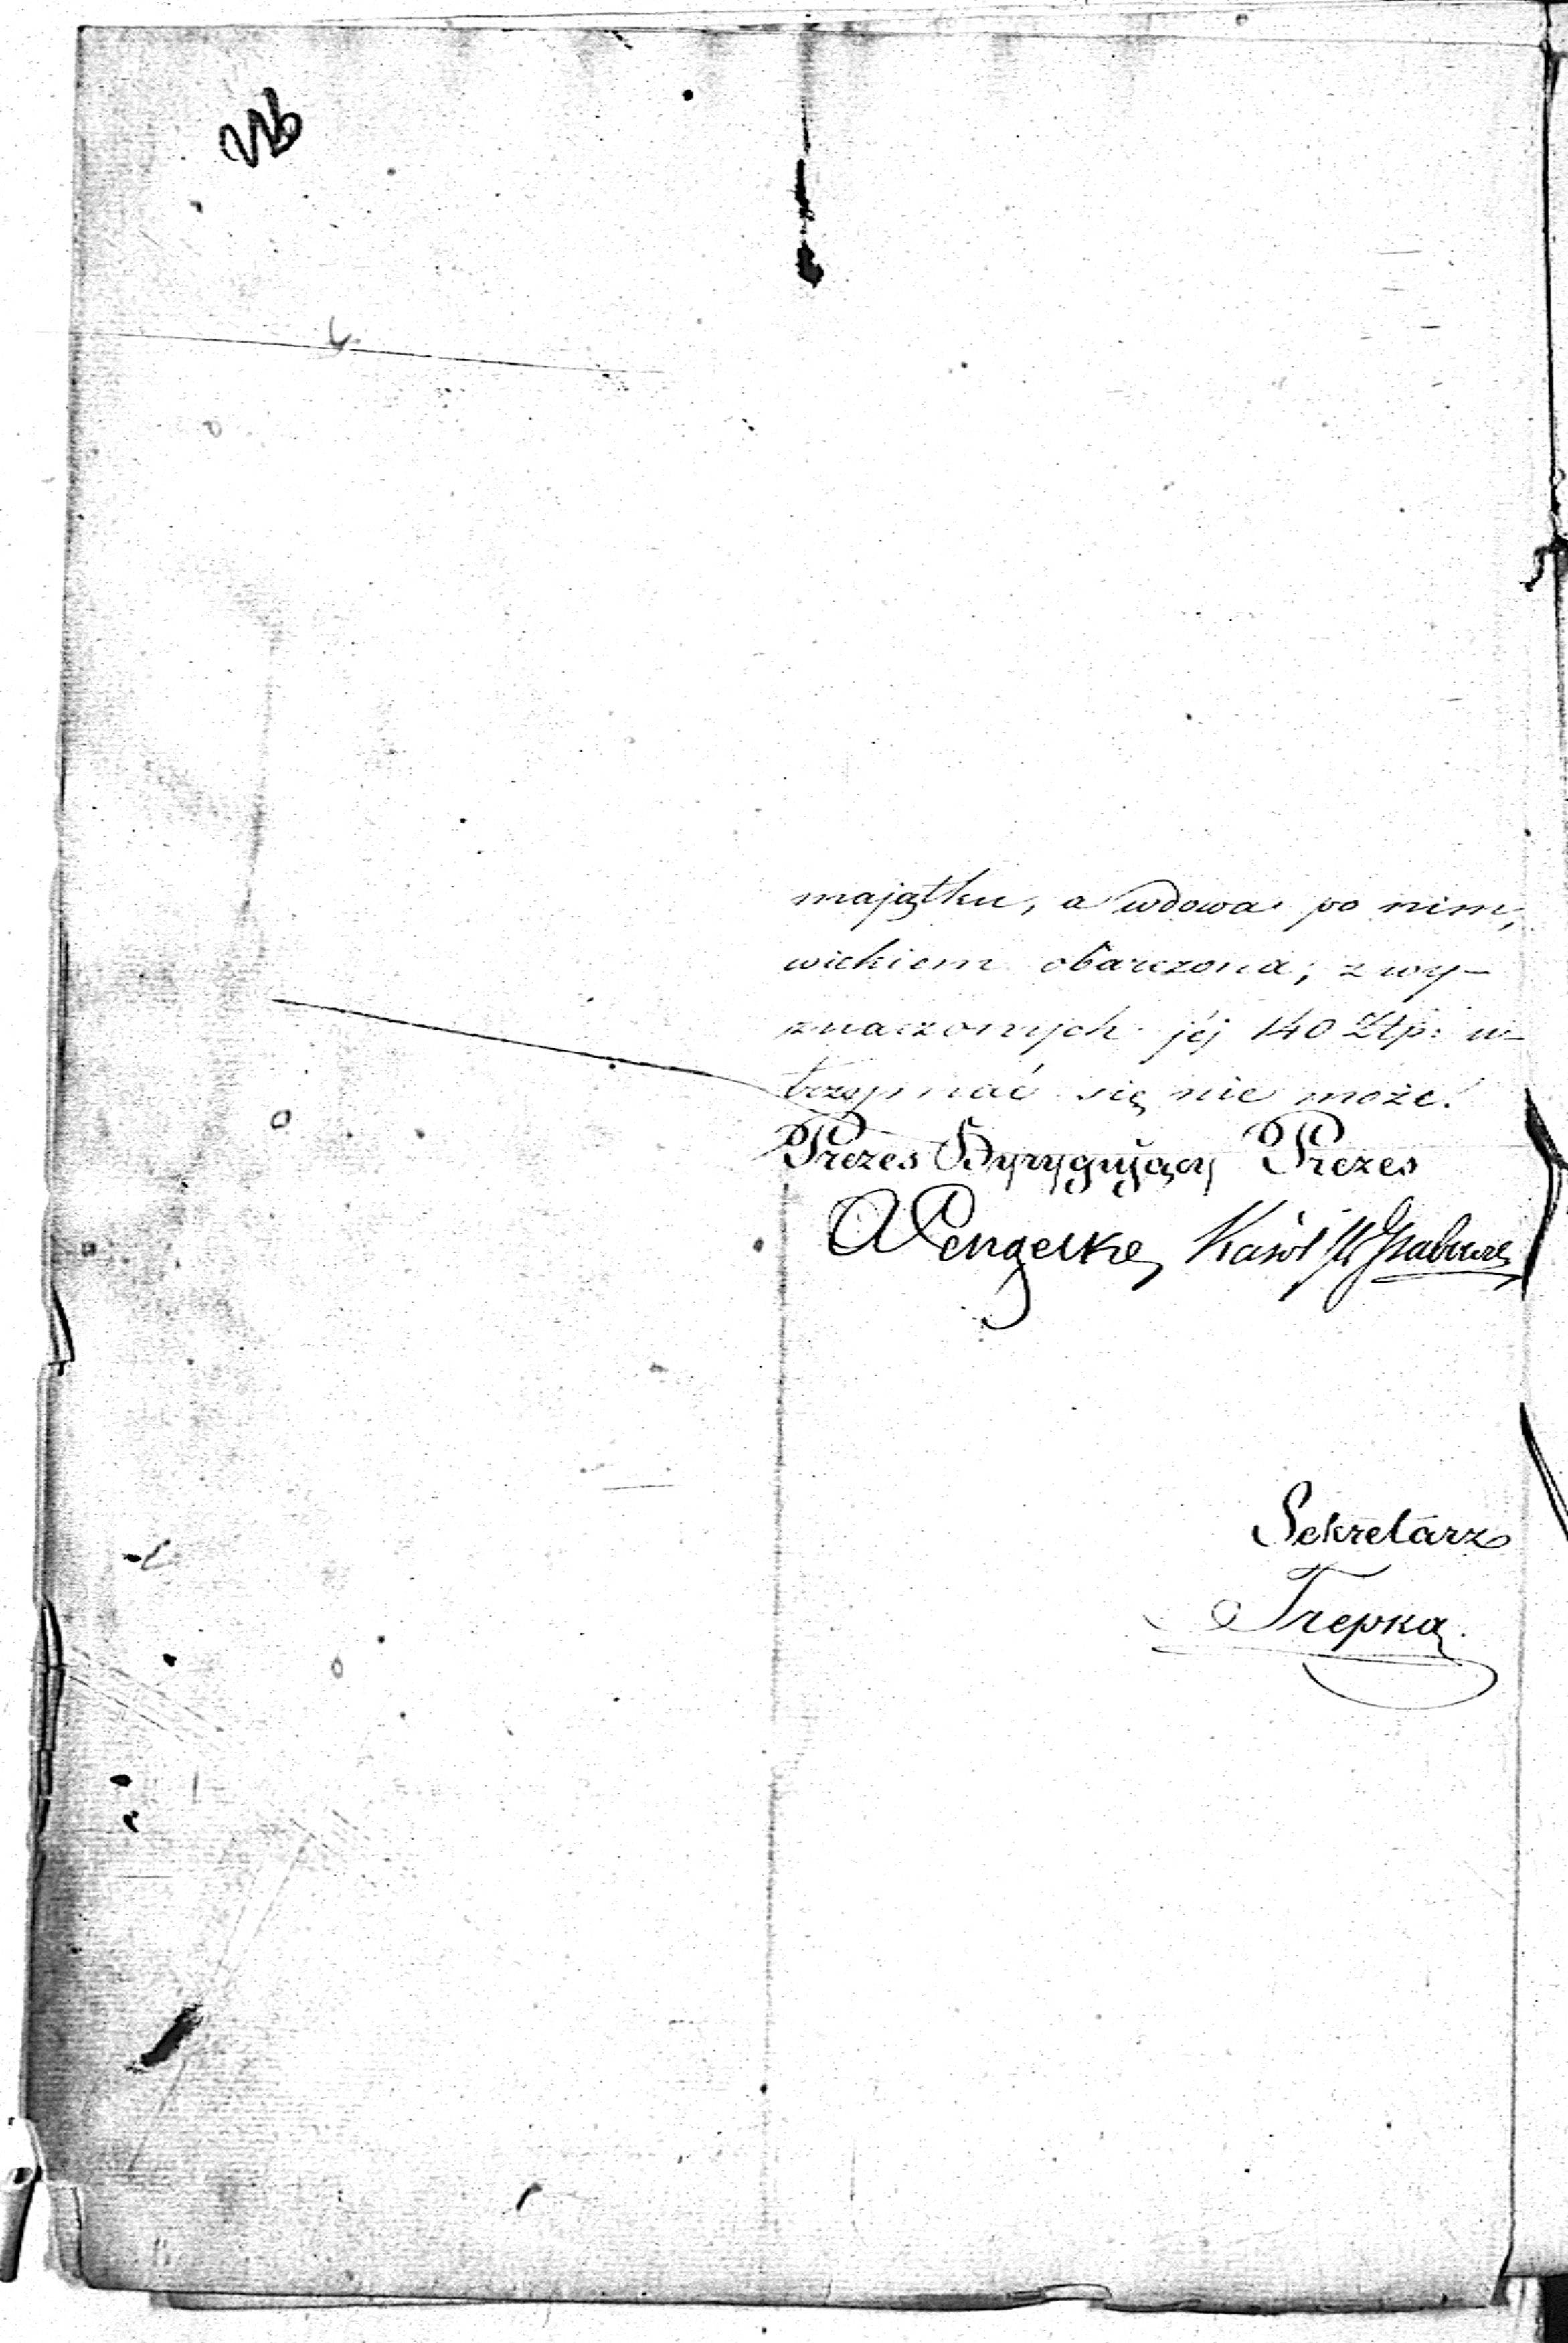 majątku, a wdowa po nim,
wiekiem obarczona, z wy-
znaczonych jéj 140 Złp: u-
trzymać się nie może.
Prezes Dyrygujący Prezes
A Pengelke, Karól
Sekretarz
Trepka.